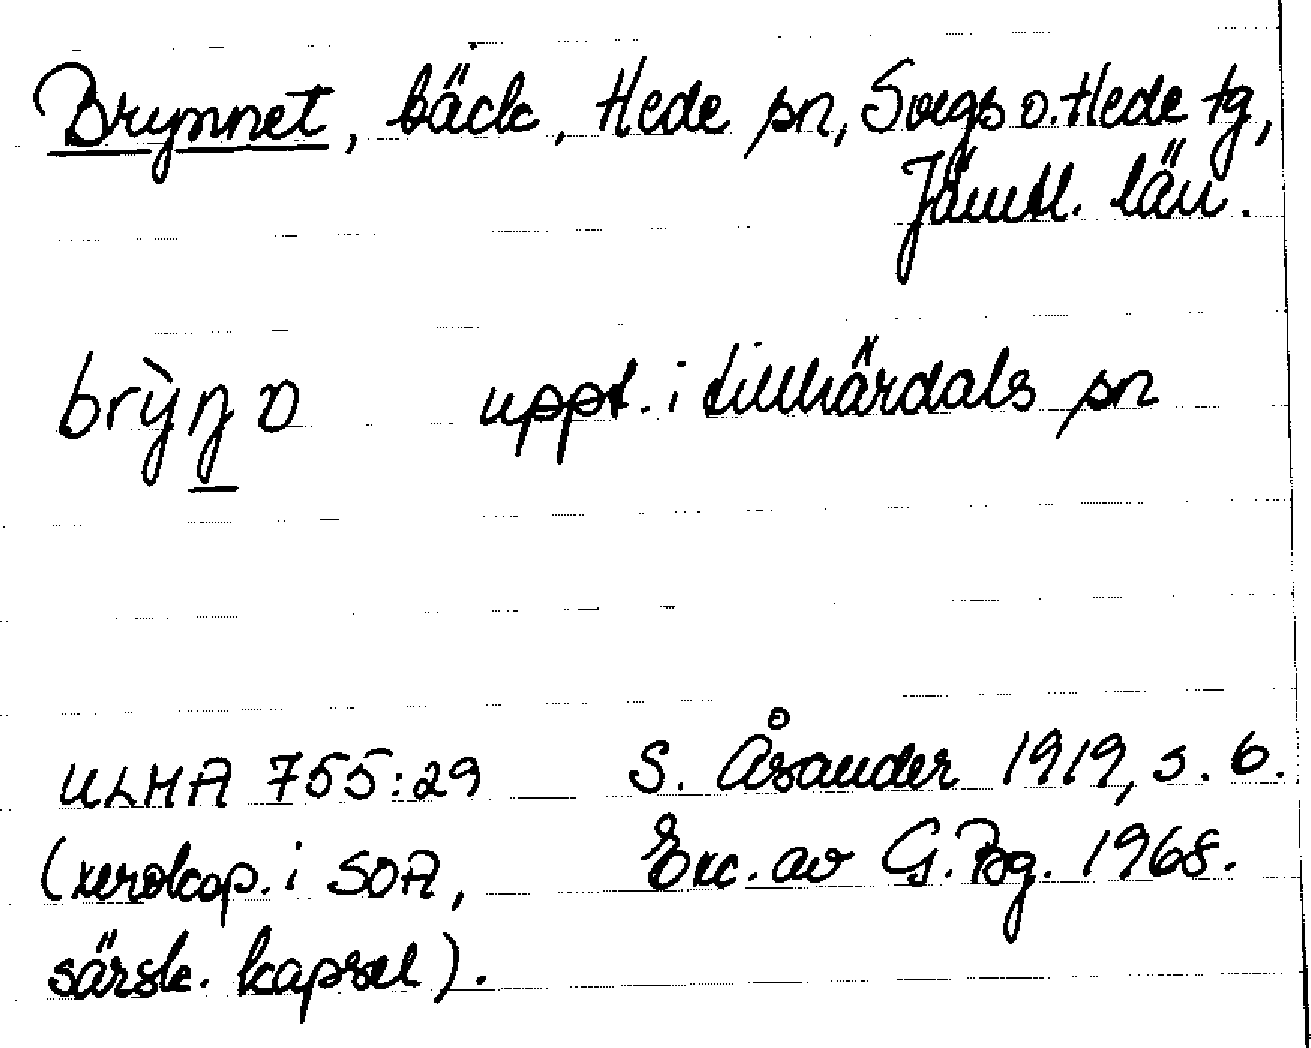 Brynnet, bäck, Hede sn, Svegs o. Hede tg,
Jämtl. län.
uppt. i Lillhärdals sn
ULMA 755:29 S. Åsander 1919, s. 6.
(xerokop. i SOA, Exc. av G. Bg. 1968.
särsk. kapsel).